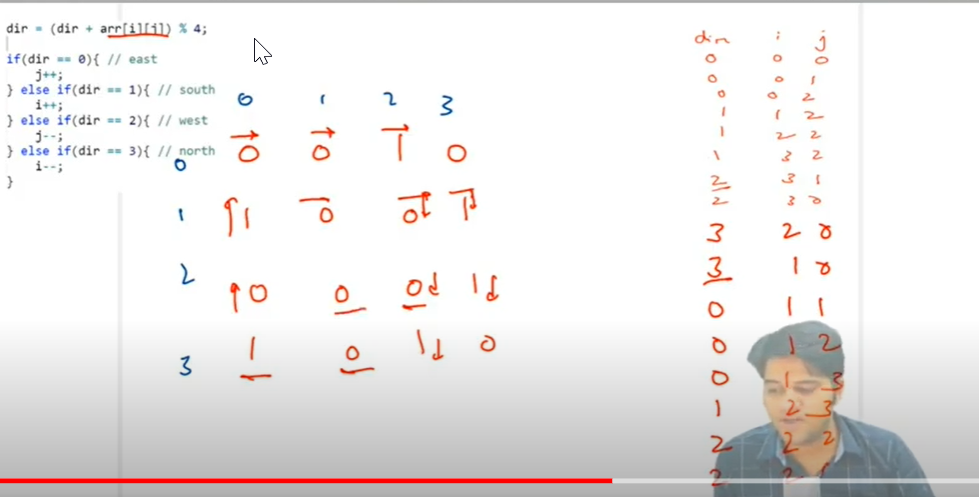 dir = (dir + arr[i][j]) % 4;
if(dir == 0){ // east
j++;
} else if(dir == 1){ // south
i++;
} else if(dir == 2){ // west
j--;
} else if(dir == 3){ // north
i--;
}
0 1 2 3
0 0 0 1 0
1 1 0 0 1
2 0 0 0 1
3 1 0 1 0
dir i j
0 0 0
0 0 1
0 0 2
1 1 2
1 2 2
1 3 2
2 3 1
2 3 0
3 2 0
3 1 0
0 1 1
0 1 2
0 1 3
1 2 3
2 2 2
2 2